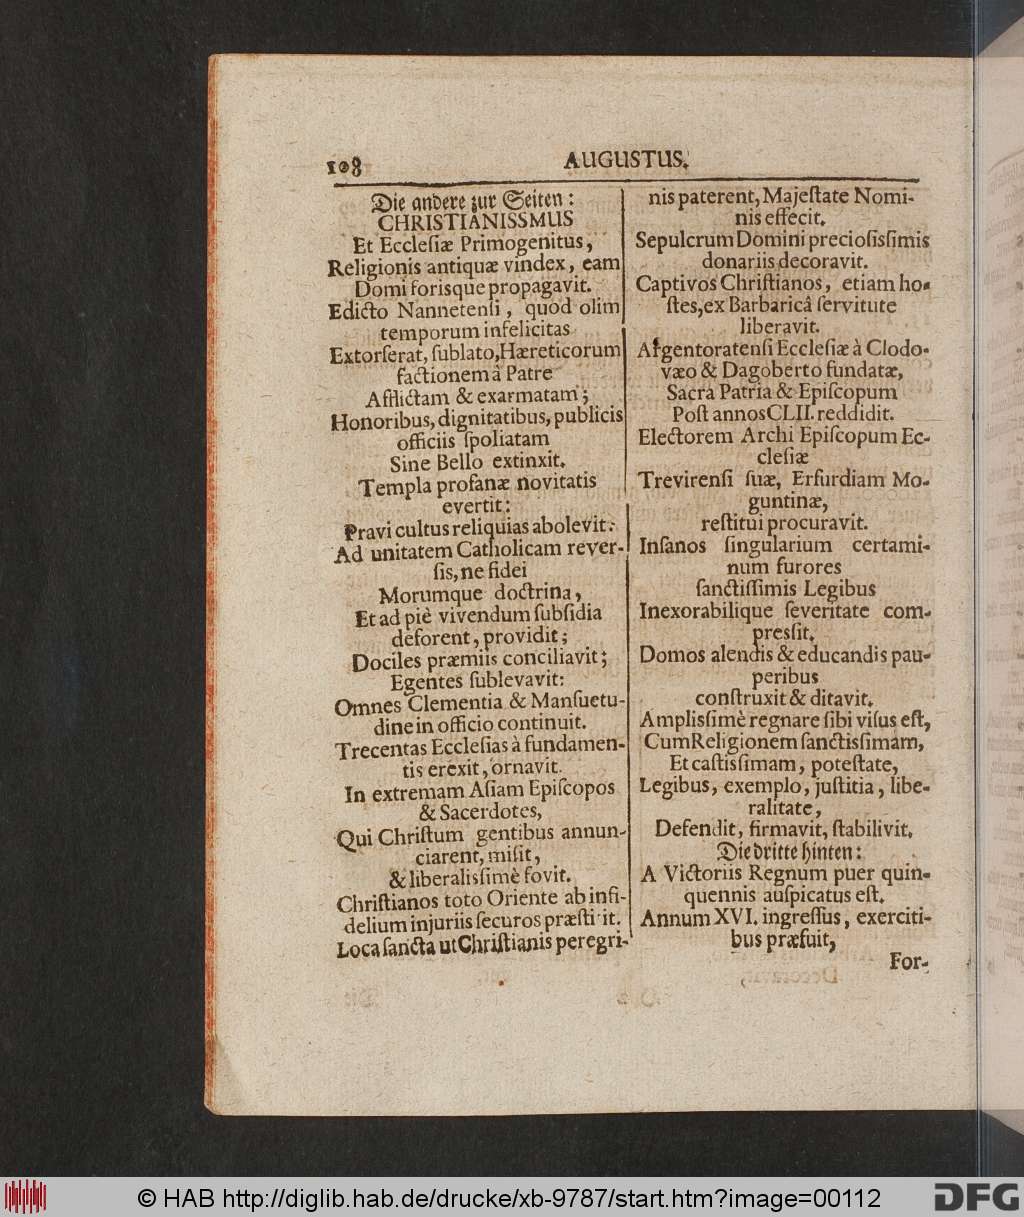 108
AUGUSTUS.
Die andere zur Seiten:
CHRISTIANISSMUS
Et Eccleſiæ Primogenitus,
Religionis antiquæ vindex, eam
Domi forisque propagavit.
Edicto Nannetenſi, quod olim
temporum infelicitas
Extorſerat, ſublato, Hæreticorum
factionem â Patre
Afflictam & exarmatam;
Honoribus, dignitatibus, publicis
officiis ſpoliatam
Sine Bello extinxit.
Templa profanæ novitatis
evertit:
Pravi cultus reliquias abolevit:
Ad unitatem Catholicam rever-
ſis, ne fidei
Morumque doctrina,
Et ad piè vivendum ſubſidia
deforent, providit;
Dociles præmiis conciliavit;
Egentes ſublevavit:
Omnes Clementia & Manſuetu-
dine in officio continuit.
Trecentas Eccleſias à fundamen-
tis erexit, ornavit.
In extremam Aſiam Epiſcopos
& Sacerdotes,
Qui Chriſtum gentibus annun-
ciarent, miſit,
& liberaliſſimè fovit.
Chriſtianos toto Oriente ab infi-
delium injuriis ſecuros præſtitit.
Loca ſancta ut Chriſtianis peregri-
nis paterent, Majeſtate Nomi-
nis effecit.
Sepulcrum Domini precioſisſimis
donariis decoravit.
Captivos Chriſtianos, etiam ho-
ſtes, ex Barbaricâ ſervitute
liberavit.
Argentoratenſi Eccleſiæ à Clodo-
væo & Dagoberto fundatæ,
Sacra Patria & Epiſcopum
Poſt annos CLII. reddidit.
Electorem Archi Epiſcopum Ec-
cleſiæ
Trevirenſi ſuæ, Erfurdiam Mo-
guntinæ,
reſtitui procuravit.
Inſanos ſingularium certami-
num furores
ſanctiſſimis Legibus
Inexorabilique ſeveritate com-
presſit.
Domos alendis & educandis pau-
peribus
conſtruxit & ditavit.
Amplisſimè regnare ſibi viſus eſt,
Cum Religionem ſanctisſimam,
Et caſtisſimam, poteſtate,
Legibus, exemplo, juſtitia, libe-
ralitate,
Defendit, firmavit, ſtabilivit.
Die dritte hinten:
A Victoriis Regnum puer quin-
quennis auſpicatus eſt.
Annum XVI. ingreſſus, exerciti-
bus præfuit,
For-
© HAB http://diglib.hab.de/drucke/xb-9787/start.htm?image=00112
DFG